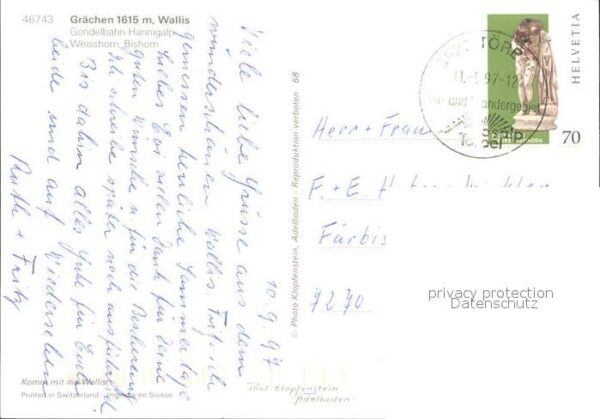 46743 Grächen 1615 m, Wallis
Gondelbahn Hannigalp
Weisshorn, Bishorn
10.9.97
Viele liebe Grüsse aus dem
wunderschönen Wallis.
geniessen herrliche Sommertage
Liebes Eos vielen Dank für deine
guten Wünsche für die Besserung
Ich schreibe später noch ausführlich!
Bis dahin alles Gute für Euch
beide und auf Wiedersehen
Ruth + Fritz
Komm mit ins Wallis
Printed in Switzerland - Imprimé en Suisse
© Photo Klopfenstein, Adelboden - Reproduktion verboten 68
Phot Klopfenstein
Adelboden
HELVETIA
70
TÖRBEL
97-12
und Wandergebiet
Törbel
Herr + Frau
F. + E.
Färbis
7270
privacy protection
Datenschutz